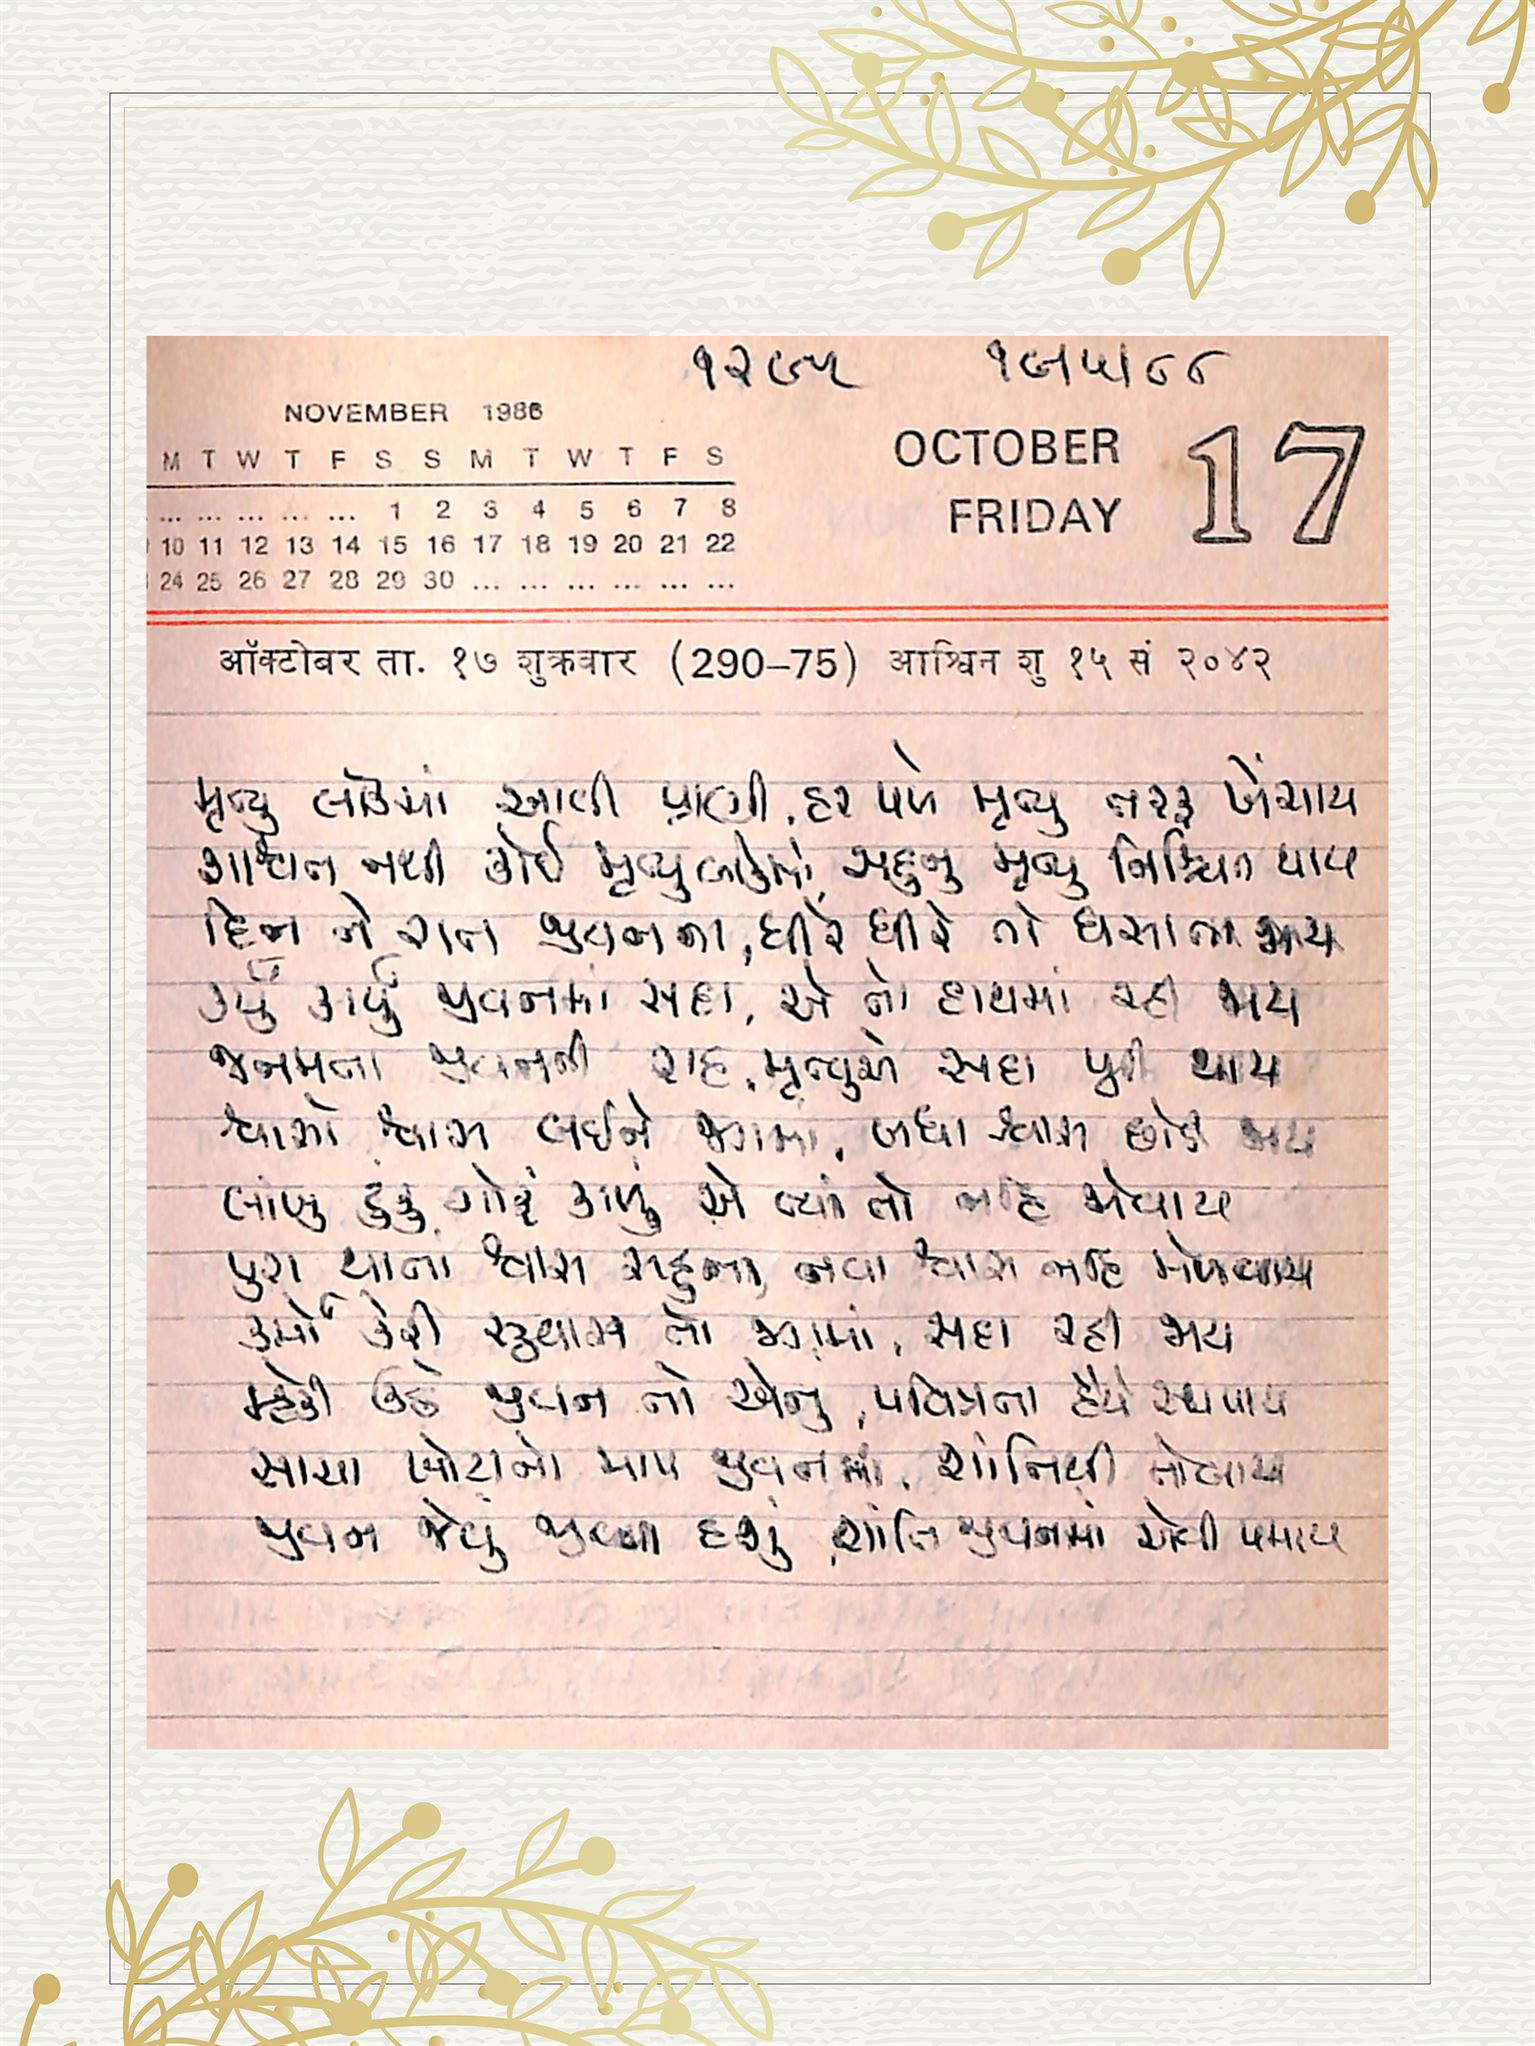 ૧૨૭૫ ૧૭।૫।૮૮
NOVEMBER 1986
OCTOBER 17
FRIDAY
M T W T F S S M T W T F S
... ... ... ... ... 1 2 3 4 5 6 7 8
10 11 12 13 14 15 16 17 18 19 20 21 22
24 25 26 27 28 29 30 ... ... ... ... ... ...
ऑक्टोबर ता. १७ शुक्रवार (290–75) आश्विन शु १५ सं २०४२
મૃત્યુ લોકમાં આવી પ્રાણી, હર પળે મૃત્યુ તરફ ખેંચાય
શાશ્વત નથી કોઈ મૃત્યુલોકમાં, સહુનુ મૃત્યુ નિશ્ચિત થાય
દિન ને રાત જીવનના, ધીરે ધીરે તો ઘસાતા જાય
કર્યું કાર્યું જીવનમાં સદા, એ તો હાથમાં રહી જાય
જનમતા જીવનની રાહ, મૃત્યુએ સદા પુરી થાય
શ્વાસો શ્વાસ લઈને જગમાં, બધા શ્વાસ છોડી જાય
લાંબુ ટુંકુ ગોરૂં કાળું એ ત્યાં તો નહિ જોવાય
પુરા થાતા શ્વાસ સહુના, નવા શ્વાસ નહિ મેળવાય
કર્મો કેરી સુવાસ તો જગમાં, સદા રહી જાય
મ્હેકી ઉઠે જીવન તો એનુ, પવિત્રતા હૈયે સ્થપાય
સાચા ખોટાનો માપ જીવનમાં, શાંતિથી તોલાય
જીવન જેવું જીવ્યા હશું, શાંતિ જીવનમાં એવી પમાય